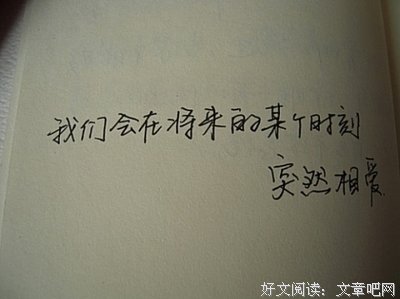 我们会在将来的某个时刻
突然相爱
好文阅读：文章吧网